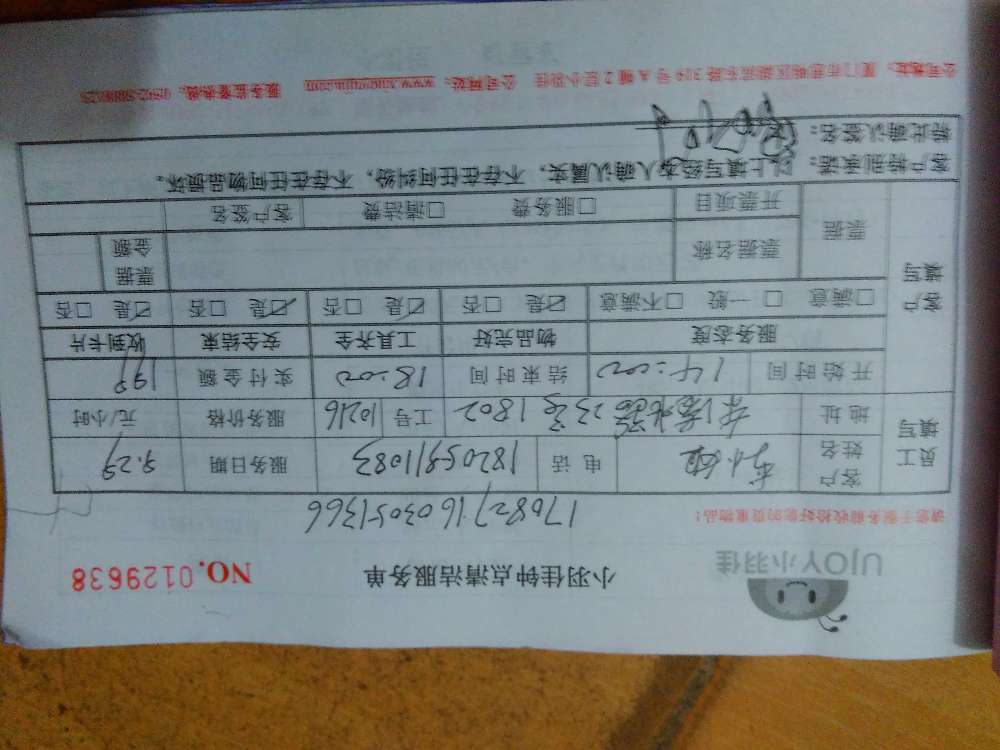 UJOY小羽佳
小羽佳钟点清洁服务单
NO.0129638
请您于服务前收拾好您的贵重物品！
17082716030051366
员工填写
客户姓名 李小姐 电话 18205911083 服务日期 9.29
地址 23号1802 工号 10216 服务价格 元/小时
开始时间 14:00 结束时间 18:00 实付金额 199
客户填写
服务态度 物品完好 工具齐全 安全结束 收到卡片
□满意 □一般 □不满意 ☑是 □否 ☑是 □否 ☑是 □否 ☑是 □否
票据 票据名称 票据金额
开票项目 □服务费 □清洁费 客户签名
客户特别承诺：以上填写经本人确认属实，不存在任何纠纷，不存在任何物品损坏。
特此确认签名：
公司地址：厦门市思明区湖滨东路319号A幢2层小羽佳 公司网站：www.xiaoyujia.com 服务监督热线：0592-5888023